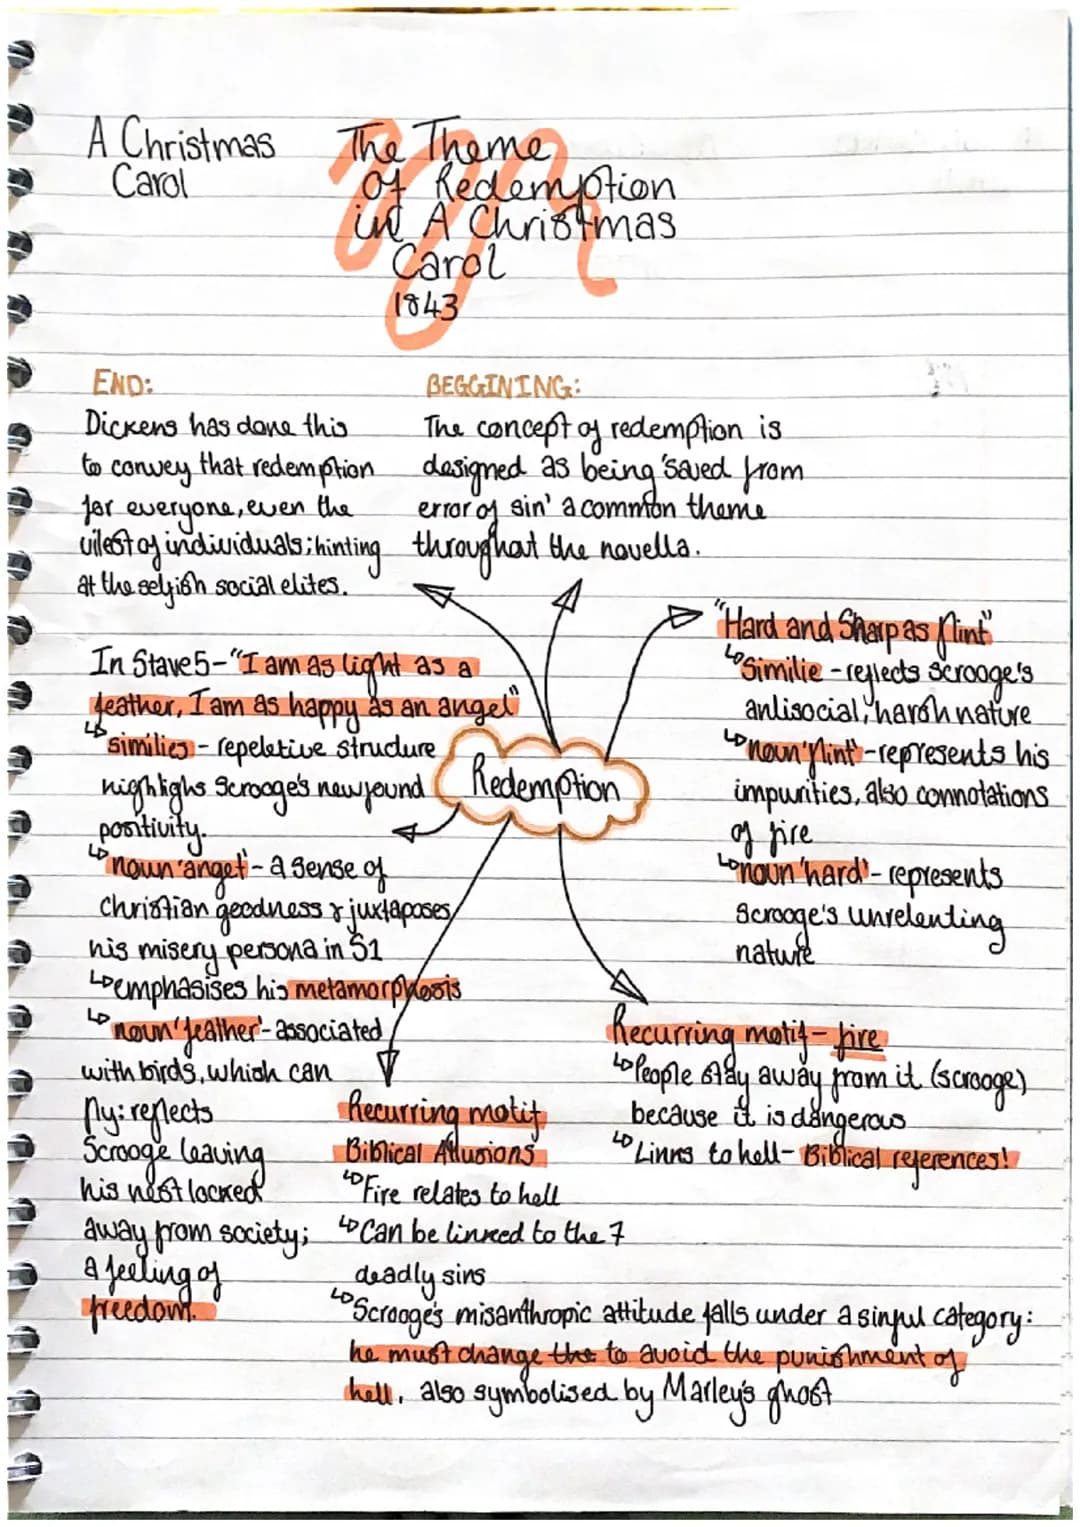 A Christmas
Carol
The Theme
Of Redemption
in A Christmas
Carol
1843
END:
Dickens has done this
to convey that redemption
for everyone, even the
vilest of individuals; hinting
at the selfish social elites.
BEGGINING:
The concept of redemption is
designed as being 'saved from
error of sin' a common theme
throughout the novella.
"Hard and Sharp as flint"
↳ Similie - reflects Scrooge's
antisocial, harsh nature
↳ noun 'flint' - represents his
impurities, also connotations
of fire
↳ noun 'hard' - represents
Scrooge's unrelenting
nature
In Stave 5 - "I am as light as a
feather, I am as happy as an angel"
↳ similies - repetetive structure
highlighs Scrooge's newfound
positivity.
↳ noun 'angel' - a sense of
christian goodness & juxtaposes
his misery persona in S1
↳ emphasises his metamorphosis
↳ noun 'feather' - associated
with birds, which can
fly: reflects
Scrooge leaving
his nest locked
away from society;
a feeling of
freedom.
Redemption
Recurring motif - fire
↳ People stay away from it (scrooge)
because it is dangerous
↳ Links to hell - Biblical references!
Recurring motif
Biblical Allusions
↳ Fire relates to hell
↳ Can be linked to the 7
deadly sins
↳ Scrooge's misanthropic attitude falls under a sinful category:
he must change the to avoid the punishment of
hell, also symbolised by Marley's ghost